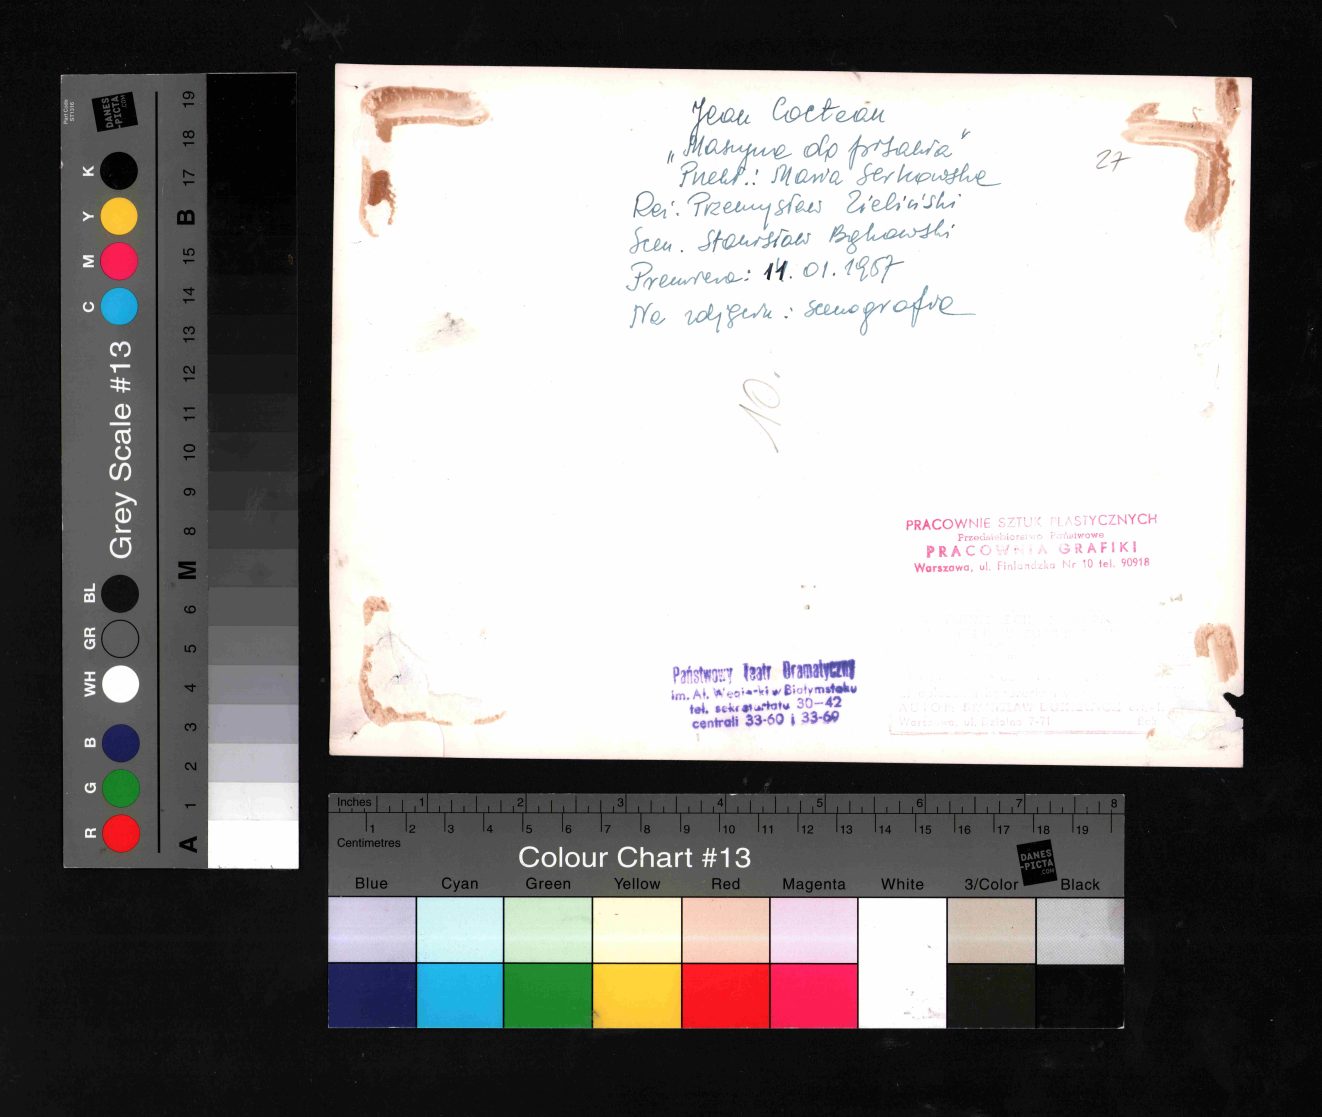 Jean Cocteau
„Maszyna do pisania"
Przekł.: Maria Serkowska
Reż. Przemysław Zieliński
Scen. Stanisław Bąkowski
Premiera: 14. 01. 1967
Na zdjęciu: scenografia
27
10.
PRACOWNIE SZTUK PLASTYCZNYCH
Przedsiębiorstwo Państwowe
PRACOWNIA GRAFIKI
Warszawa, ul. Finlandzka Nr 10 tel. 90918
Państwowy Teatr Dramatyczny
im. Al. Węgierki w Białymstoku
tel. sekretariatu 30-42
centrali 33-60 i 33-69
Warszawa, ul. Dzielna 7-71
Part Code
ST1316
DANES
-PICTA
.COM
Grey Scale #13
R G B WH GR BL C M Y K
A 1 2 3 4 5 6 M 8 9 10 11 12 13 14 15 B 17 18 19
Inches 1 2 3 4 5 6 7 8
1 2 3 4 5 6 7 8 9 10 11 12 13 14 15 16 17 18 19
Centimetres
Colour Chart #13
DANES
-PICTA
.COM
Blue Cyan Green Yellow Red Magenta White 3/Color Black